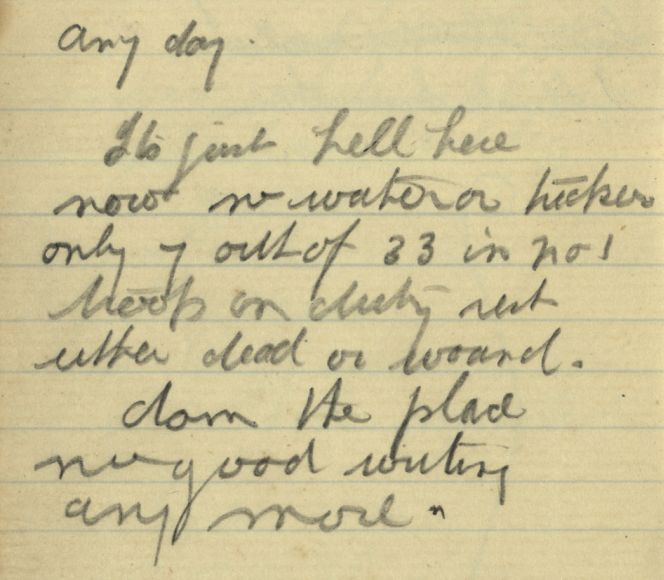 any day.
Its just hell here
now no water or tucker
only 7 out of 33 in no 1
troop on duty rest
either dead or wound.
dam the place
no good writing
any more "